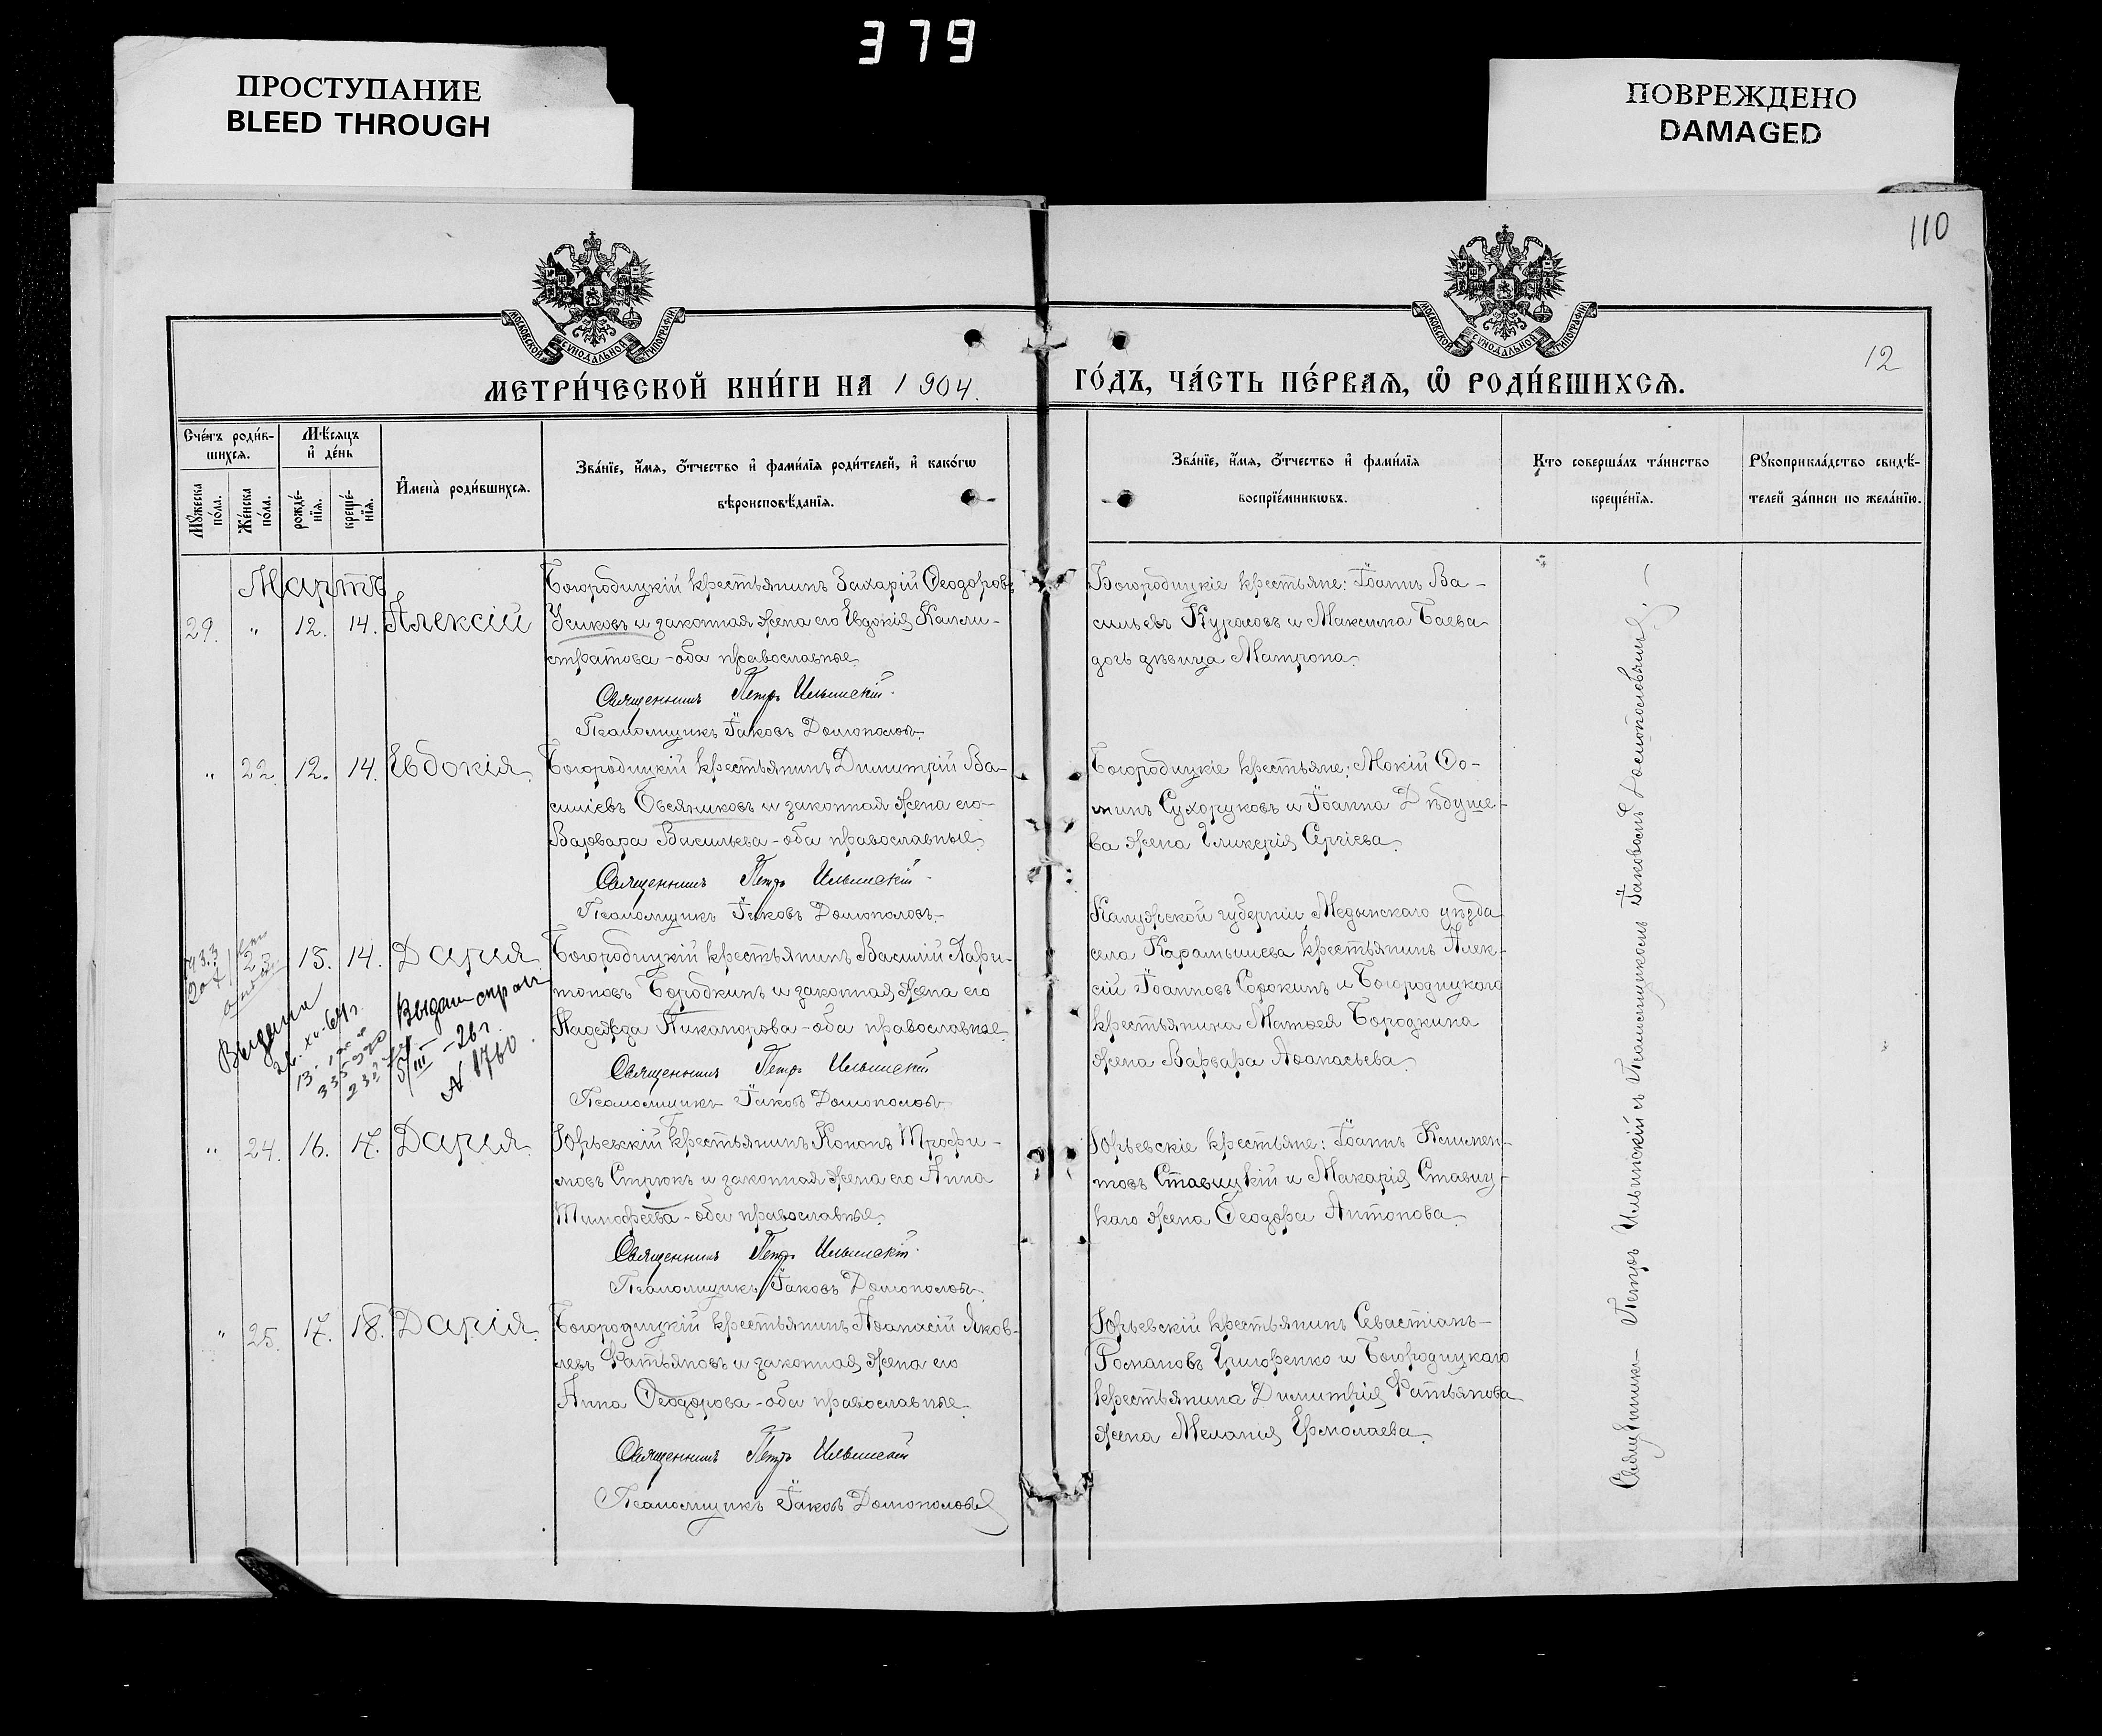 379
ПРОСТУПАНИЕ
BLEED THROUGH
ПОВРЕЖДЕНО
DAMAGED
110
МОСКОВСКОЙ СѴНОДАЛЬНОЙ ТИПОГРАФІИ
МОСКОВСКОЙ СѴНОДАЛЬНОЙ ТИПОГРАФІИ
12
МЕТРИ́ЧЕСКОЙ КНИ́ГИ НА 1904.
ГО́ДЪ, ЧА́СТЬ ПЕ́РВАЯ, Ѿ РОДИ́ВШИХСЯ.
Сче́тъ роди́в-
шихся.
Мѣ́сяцъ
и де́нь
Му́жеска по́ла.
Же́нска по́ла.
рожде́-
нїя.
креще́-
нїя.
Имена̀ роди́вшихся.
Зва́нїе, и́мя, о́тчество и фами́лїя роди́телей, и како́гѡ
вѣроисповѣ́данїя.
Зва́нїе, и́мя, о́тчество и фами́лїя
воспрїе́мникѡвъ.
Кто соверша́лъ та́инство
креще́нїя.
Рукоприкла́дство свидѣ́-
телей за́писи по жела́нїю.
Мартъ
29. " 12. 14. Алексій
Богородицкій крестьянинъ Захарій Ѳеодоровъ
Усиковъ и законная жена его Евдокія Калли-
стратова - оба православные.
Священникъ Петръ Ильинскій.
Псаломщикъ Іаковъ Домополовъ.
Богородицкіе крестьяне: Іоаннъ Ва-
сильевъ Курасовъ и Максима Баева
дочь дѣвица Матрона.
" 22. 12. 14. Евдокія.
Богородицкій крестьянинъ Димитрій Ва-
силіевъ Овсянниковъ и законная жена его
Варвара Васильева - оба православные.
Священникъ Петръ Ильинскій.
Псаломщикъ Іаковъ Домополовъ.
Богородицкіе крестьяне: Мокій Ѳо-
минъ Сухоруковъ и Іоанна Дѣдуше-
ва жена Гликерія Сергіева.
23 13. 14. Дарія
Выдана
Выдан
5/III - 26 г.
N 1760.
Богородицкій крестьянинъ Василій Хари-
тоновъ Бородкинъ и законная жена его
Надежда Никанорова - оба православные.
Священникъ Петръ Ильинскій
Псаломщикъ Іаковъ Домополовъ
Калужской губерніи Медынскаго уѣзда
села Карамышева крестьянинъ Алек-
сій Іоанновъ Сорокинъ и Богородицкаго
крестьянина Матѳея Бородкина
жена Варвара Аѳанасьева.
" 24. 16. 17. Дарія.
Юрьевскій крестьянинъ Кононъ Трофи-
мовъ Стрюкъ и законная жена его Анна
Тимофеева - оба православные.
Священникъ Петръ Ильинскій.
Псаломщикъ Іаковъ Домополовъ.
Юрьевскіе крестьяне: Іоаннъ Климен-
товъ Ставицкій и Макарія Ставиц-
каго жена Ѳеодора Антонова.
" 25. 17. 18. Дарія.
Богородицкій крестьянинъ Аѳанасій Яков-
левъ Фатьяновъ и законная жена его
Анна Ѳеодорова - оба православные.
Священникъ Петръ Ильинскій
Псаломщикъ Іаковъ Домополовъ
Юрьевскій крестьянинъ Севастіанъ
Романовъ Григоренко и Богородицкаго
крестьянина Димитрія Фатьянова
жена Меланія Ермолаева.
Священникъ Петръ Ильинскій съ Псаломщикомъ Іаковомъ Домополовымъ.